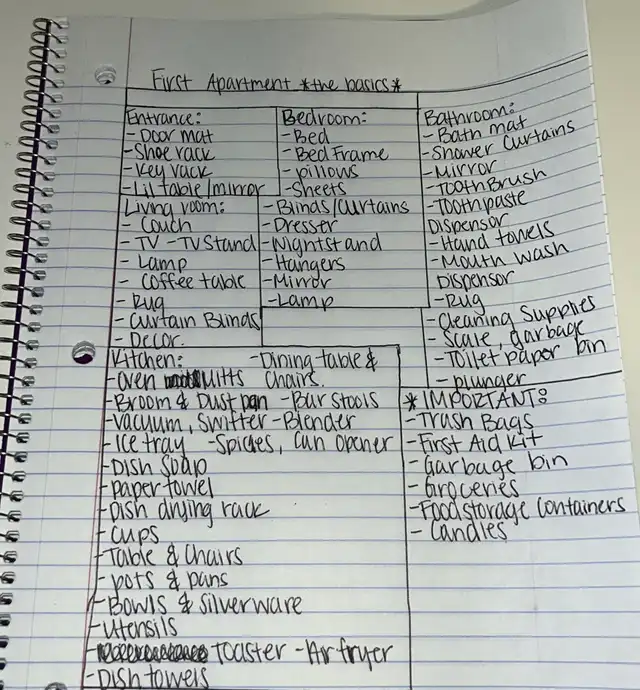 First Apartment *the basics*
Entrance:
- Door mat
- Shoe rack
- Key rack
- Lil table/mirror
Living room:
- Couch
- TV - TV Stand
- Lamp
- Coffee table
- Rug
- Curtain Blinds
- Decor.
Bedroom:
- Bed
- Bed Frame
- pillows
- Sheets
- Blinds/Curtains
- Dresser
- Nightstand
- Hangers
- Mirror
- Lamp
Bathroom:
- Bath mat
- Shower Curtains
- Mirror
- Toothbrush
- Toothpaste
Dispensor
- Hand towels
- Mouth wash
Dispensor
- Rug
- Cleaning Supplies
- Scale, garbage
- Toilet paper bin
- plunger
Kitchen: - Dining table &
- Oven Mitts Chairs.
- Broom & Dust pan - Bar stools
- Vacuum, Swifter - Blender
- Ice tray - Spicies, Can opener
- Dish Soap
- paper towel
- Dish drying rack
- Cups
- Table & Chairs
- pots & pans
- Bowls & Silverware
- Utensils
- Toaster - Air fryer
- Dish towels
* IMPORTANT:
- Trash Bags
- First Aid Kit
- Garbage bin
- Groceries
- Food storage Containers
- Candles